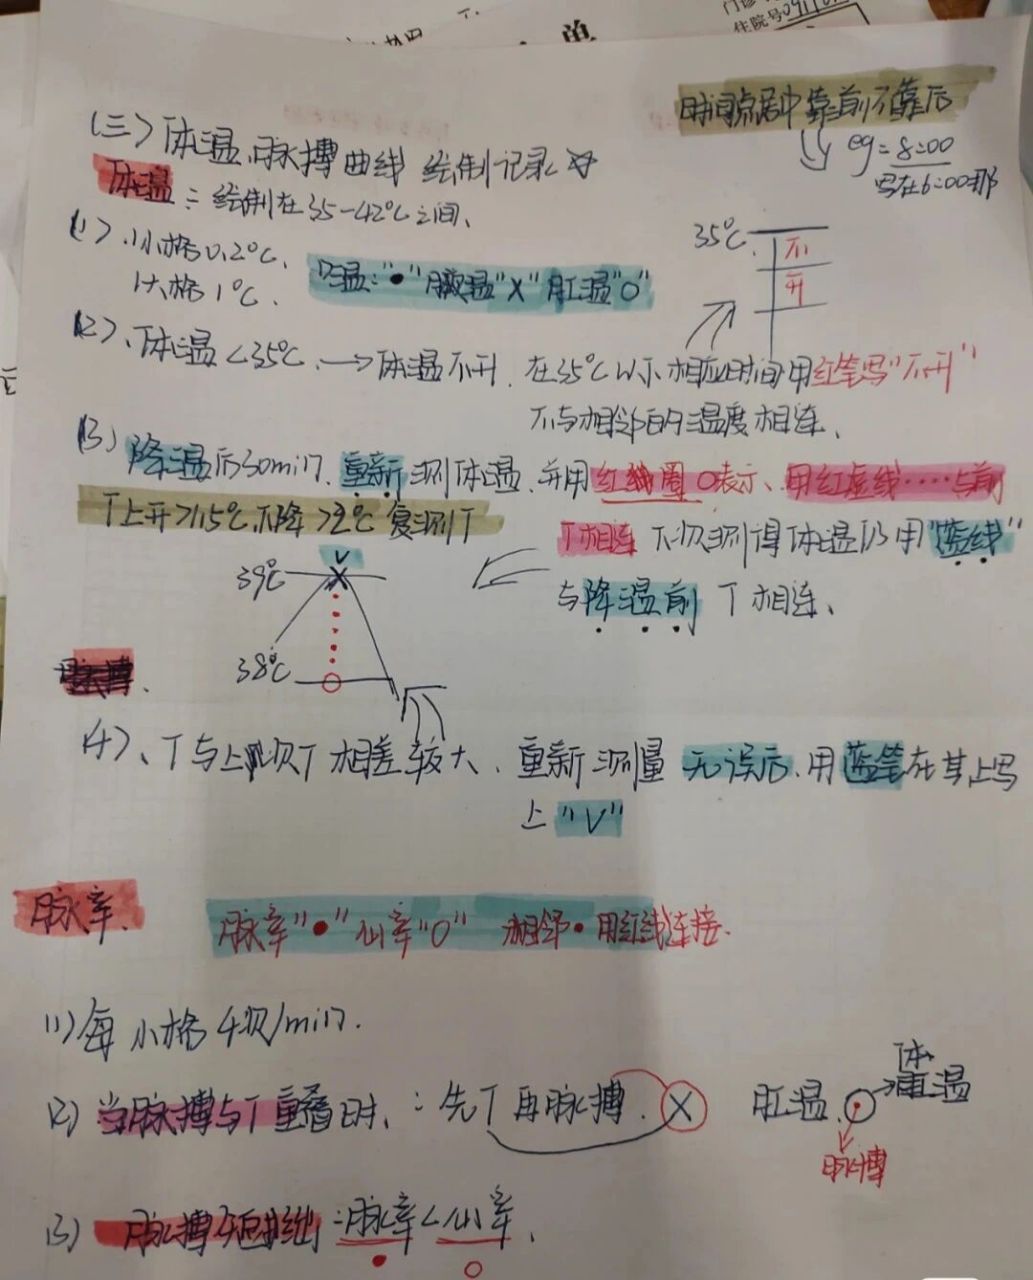 单
门诊
住院号0911
时间点居中靠前不靠后
(三)体温、脉搏曲线 绘制记录☆
eg=8:00
写在6:00那
体温:绘制在35-42℃之间、
(1)、1小格0.2℃、
1大格1℃、
口温:"●"腋温"X"肛温"O"
35℃
不
升
(2)、体温<35℃、→体温不升、在35℃以下相应时间用红笔写"不升"
不与相邻的温度相连、
(3)降温后30min、重新测体温、并用红线圈O表示、用红虚线····与前
T上升>1.5℃、下降>2℃ 复测T
T相连 下次测得体温仍用"蓝线"
与降温前T相连、
V
39℃
38℃
(4)、T与上次T相差较大、重新测量无误后、用蓝笔在其上写
上"V"
脉率、
脉率"●"心率"O" 相邻●用红线连接、
(1)每小格4次/min、
(2)当脉搏与T重叠时、:先T再脉搏、X 肛温、
体温
脉搏
(3)脉搏短绌:脉率<心率、
● O